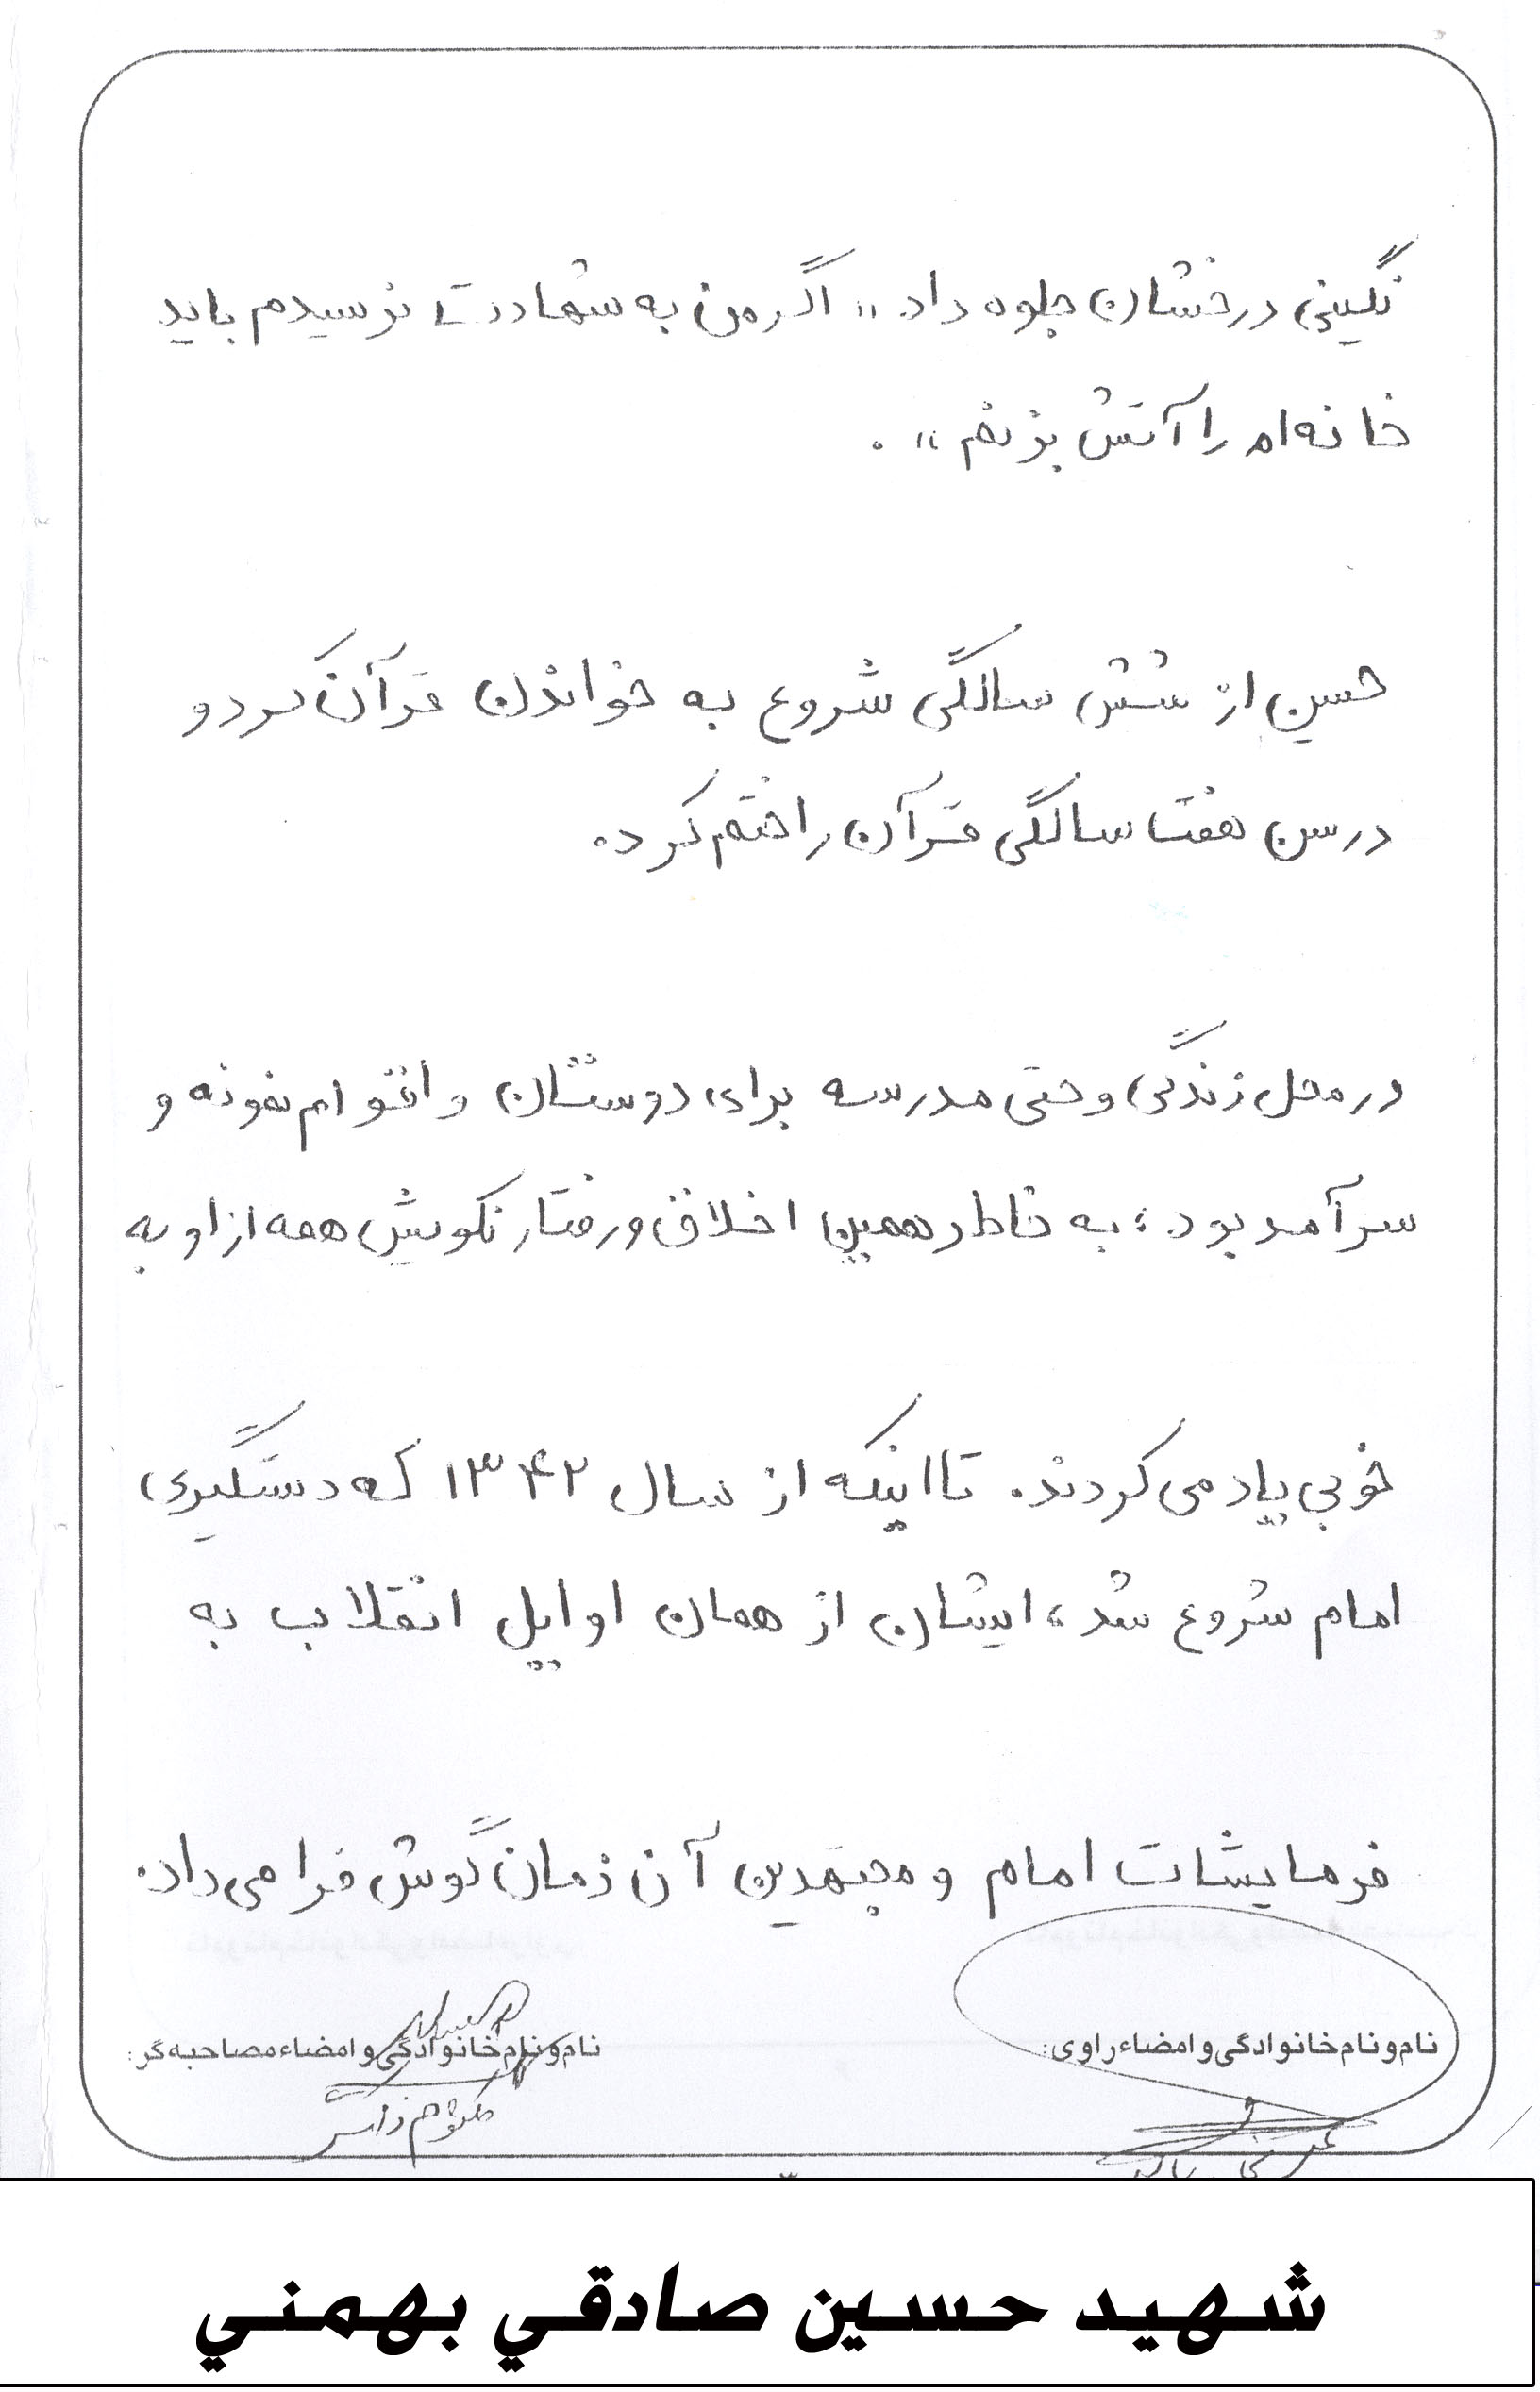 نگینی درخشان جلوه داد. «اگر من به شهادت نرسیدم باید
خانه‌ام را آتش بزنم».
حسین از شش سالگی شروع به خواندن قرآن کرد و
در سن هفت سالگی قرآن را ختم کرد.
در محل زندگی و حتی مدرسه برای دوستان و اقوام نمونه و
سرآمد بود؛ به خاطر همین اخلاق و رفتار نکویش همه از او به
خوبی یاد می‌کردند. تا اینکه از سال ۱۳۴۲ که دستگیری
امام شروع شد، ایشان از همان اوایل انقلاب به
فرمایشات امام و مجتهدین آن زمان گوش فرا می‌داد.
نام و نام خانوادگی و امضاء راوی:
نام و نام خانوادگی و امضاء مصاحبه‌گر:
شهيد حسين صادقي بهمني